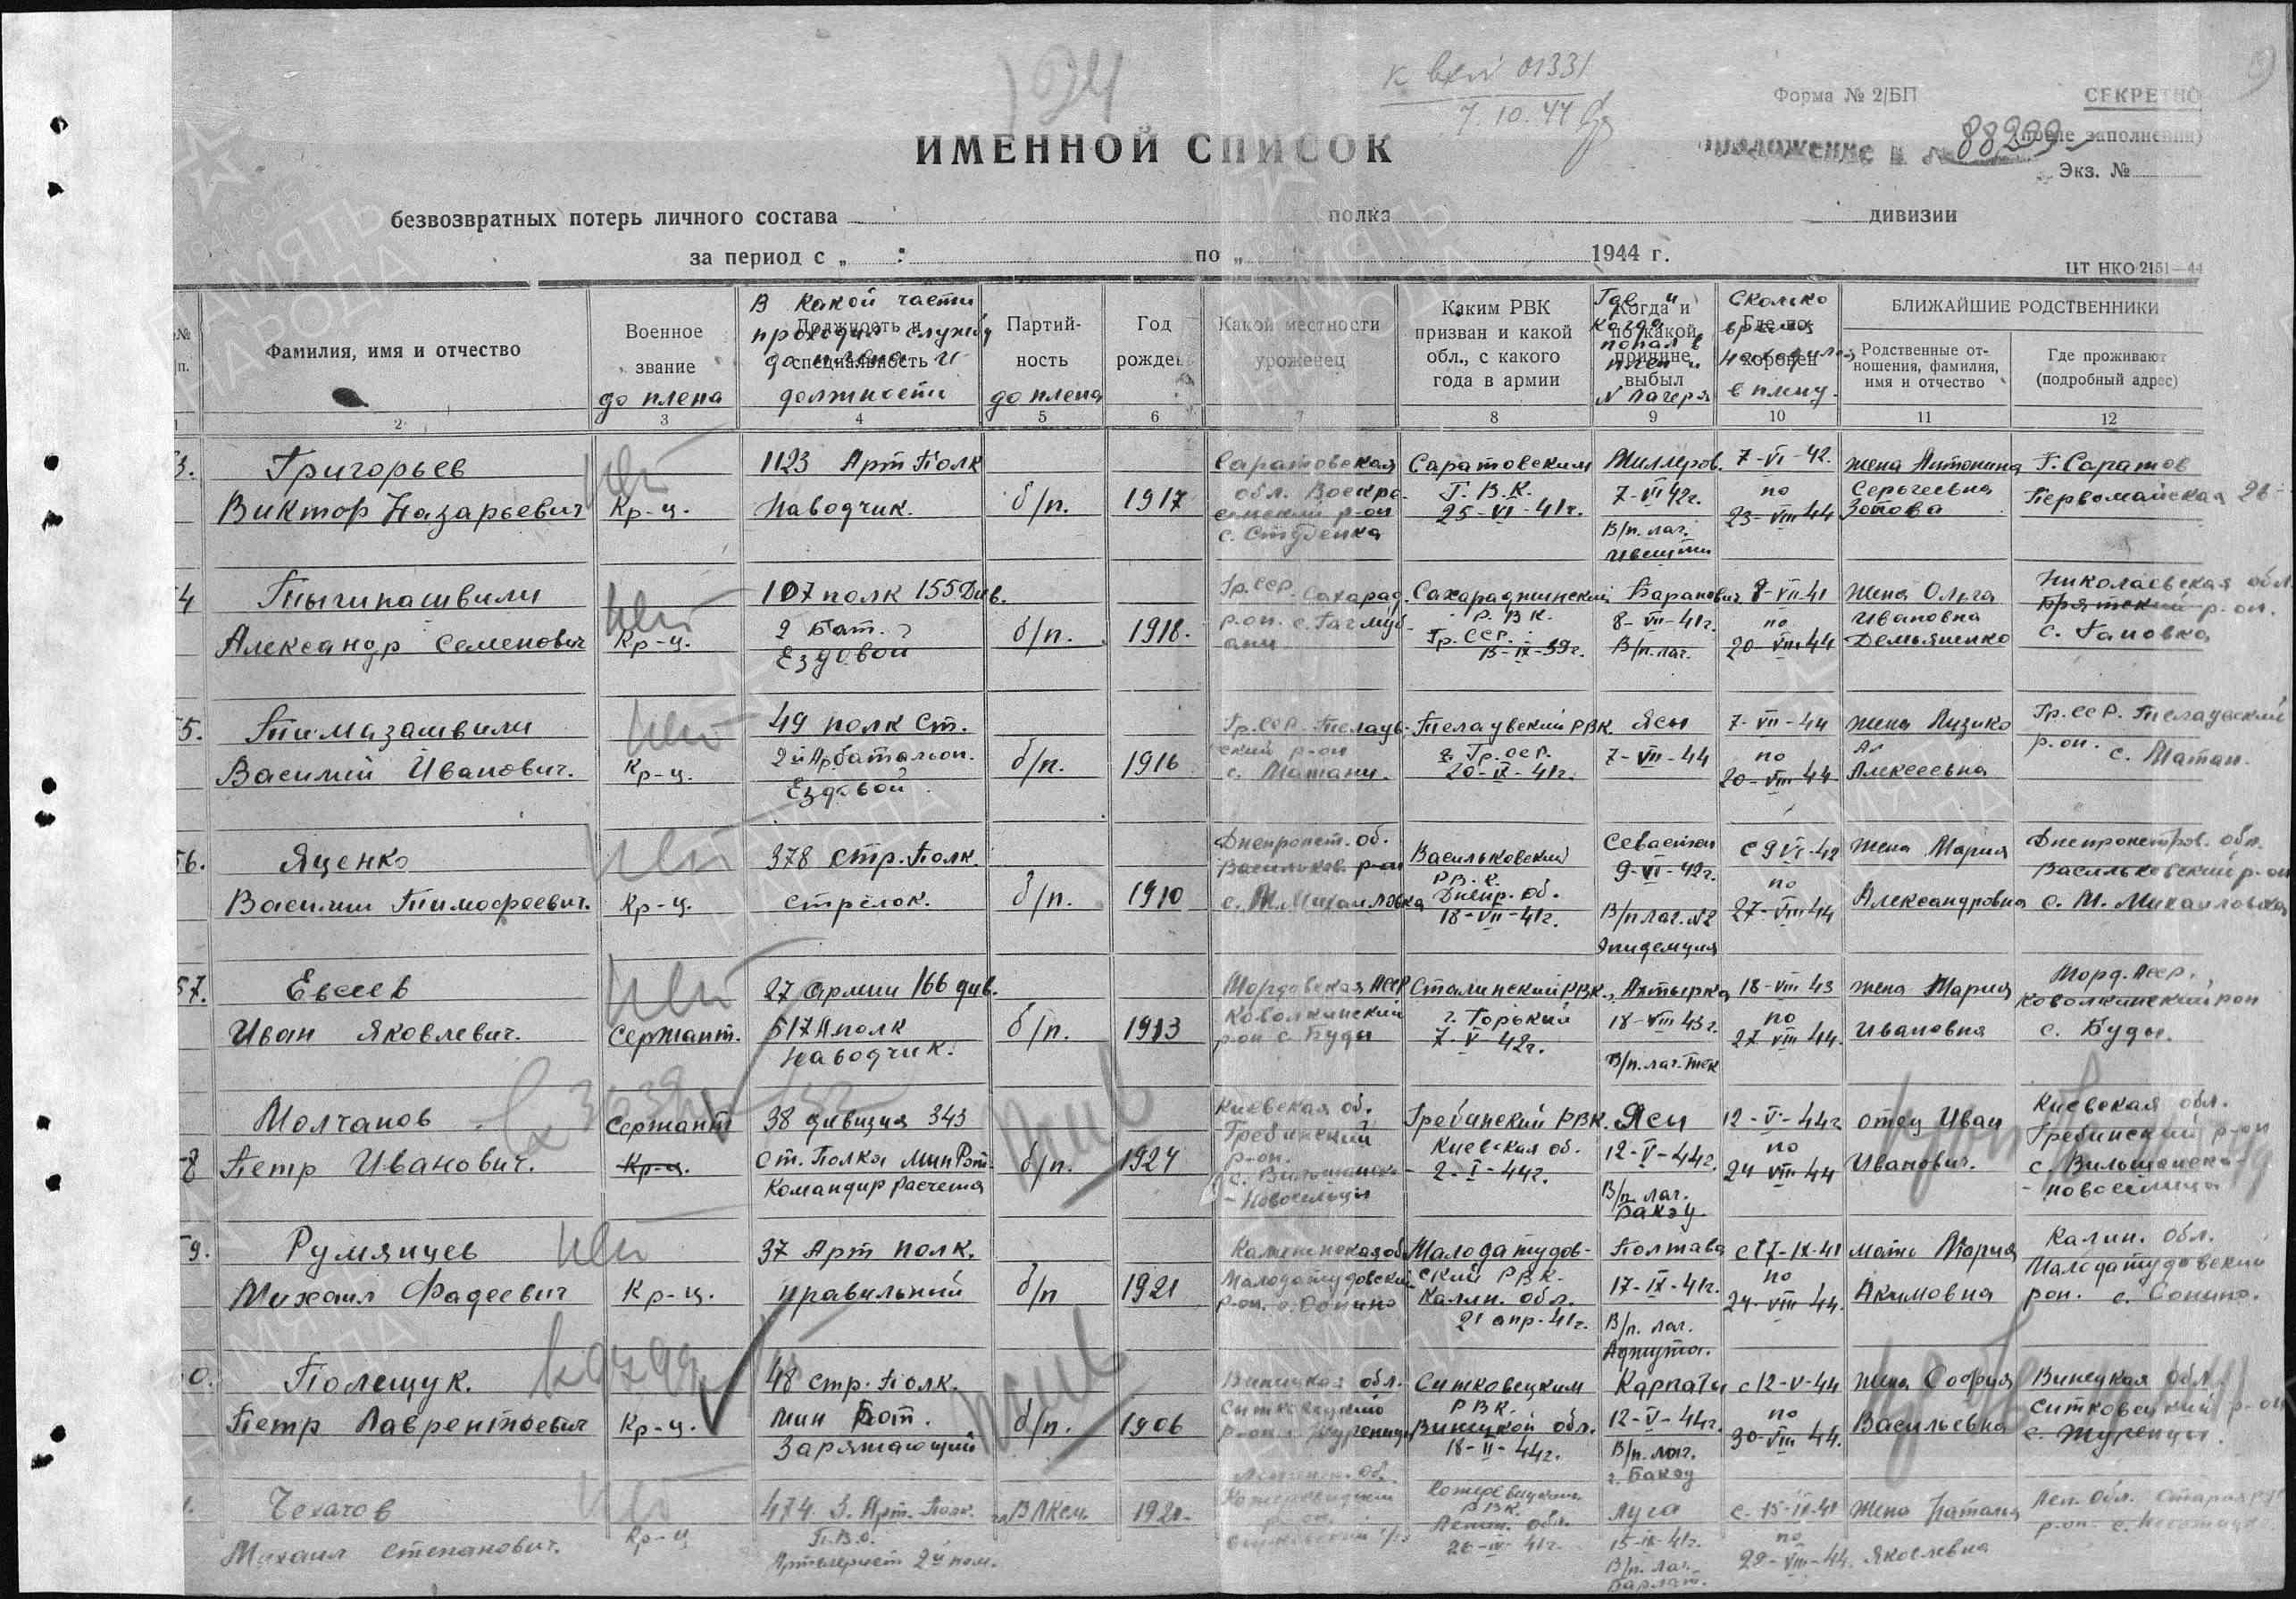 124
к вхй 01331
7.10.44
Форма № 2/БП
СЕКРЕТНО
(после заполнения)
88299
Экз. №
ИМЕННОЙ СПИСОК
безвозвратных потерь личного состава полка дивизии
за период с „ : по „ 1944 г.
ЦТ НКО 2151—44
№ п.
Фамилия, имя и отчество
Военное звание
до плена
В какой части
проходил службу
до плена и
должности
Должность и
специальность
Партий-
ность
до плена
Год
рожден
Какой местности
уроженец
Каким РВК
призван и какой
обл., с какого
года в армии
Где и
когда
попал в
плен и
N лагеря
Когда и
по какой
причине
выбыл
Сколько
время
находился
в плену.
Где по-
хоронен
БЛИЖАЙШИЕ РОДСТВЕННИКИ
Родственные от-
ношения, фамилия,
имя и отчество
Где проживают
(подробный адрес)
2 3 4 5 6 7 8 9 10 11 12
3.
Григорьев
Виктор Назарьевич
Кр-ц.
1123 Арт Полк
Наводчик.
б/п.
1917
Саратовская
обл. Воскре-
сенский р-он
с. Студенка
Саратовским
Г.В.К.
25-VI-41г.
Миллеров.
7-VI 42г.
В/п. лаг.
7-VI-42.
по
23-VIII 44
жена Антонина
Сергеевна
Зотова
Г. Саратов
Первомайская 26-
4
Тыгинашвили
Александр Семенович
Кр-ц.
107 полк 155 Див.
2 Бат.
Ездовой
б/п.
1918.
Гр. ССР. Сахарад.
р-он. с.
Сахараджинский
Р.В.К.
Гр. ССР.
15-IX-39г.
Баранович.
8-VII-41г.
В/п. лаг.
8-VII-41
по
20-VIII-44
Жена Ольга
Ивановна
Демьяненко
Николаевская обл
Братский р-он.
с. Гановка
5.
Тимазашвили
Василий Иванович.
Кр-ц.
49 полк Ст.
2й Ар. батальон.
Ездовой
б/п.
1916
Гр. ССР. Телавв-
ский р-он
с. Матани.
Телавский РВК.
Гр. ССР.
20-IX-41г.
Ясы
7-VII-44
7-VII-44
по
20-VIII-44
Жена Лизико
Алексеевна
Гр. ССР. Телавский
р-он. с. Матан.
56.
Яценко
Василий Тимофеевич.
Кр-ц.
378 Стр. Полк.
Стрелок.
б/п.
1910
Днепропет. об.
Васильков. р-он
с. М. Михаиловка
Васильковский
РВ.К.
Днепр. об.
18-VII-41г.
Севастоп
9-VI-42г.
В/п лаг. N2
Эпидемция
с 9 VI-42
по
27-VIII 44
Жена Мария
Александровна
Днепропетров. обл.
Васильковский р-он
с. М. Михаиловка
57.
Евсеев
Иван Яковлевич.
Сержант.
27 армии 166 див.
517 А полк
Наводчик.
б/п.
1913
Мордовская АССР
Коволкинский
р-он с. Буды
Сталинский РВК.
г. Горький
7-V-42г.
Ахтырка
18-VIII 43г.
В/п. лаг.
18-VIII 43
по
27 VIII 44.
жена Мария
Ивановна
Морд. АССР.
Коволкинский рон
с. Буды.
8
Молчанов
Петр Иванович.
Сержант
Кр-ц.
38 дивизия 343
ст. Полка Мин Рот.
Командир расчета
б/п.
1924
Киевская об.
Гребинский
р-он.
- Новоселицы
Гребинский РВК.
Киевская об.
2-I-44г.
Ясы
12-V-44г.
В/п. лаг.
Бакэу.
12-V-44г
по
24 VIII 44
отец Иван
Иванович.
Киевская обл.
Гребинский р-он
- новоселица
9.
Румянцев
Михаил Фадеевич
Кр-ц.
37 Арт полк.
правильный
б/п
1921
Малодатудовский
р-он. с. Сопино
Малодатудов-
ский РВК.
Калин. обл.
21 апр. 41г.
Полтава
17-IX-41г.
В/п. лаг.
Аджута.
с 17-IX-41
по
24-VIII 44.
мать Мария
Акимовна
Калин. обл.
Малодатудовский
рон. с. Сопино.
0.
Полещук.
Петр Лаврентьевич
Кр-ц.
48 стр. Полк.
Мин Рот.
Заряжающий
б/п.
1906
Виницкая обл.
Ситковецкий
Ситковецким
РВК.
Виницкой обл.
18-II-44г.
Карпаты
12-V-44г.
В/п. лаг.
г. Бакэу
с 12-V-44
по
30-VIII 44.
Жена София
Васильевна
Виницкая обл.
Ситковецкий р-он
с. Журенцы.
Чехачов
Михаил Степанович.
Кр-ц
474 З. Арт. Полк.
П.В.О.
Артилерист 2й ном.
ВЛКСМ
1921.
РВК.
Ленин. обл.
Луга
15-IX-41г.
В/п. лаг.
с. 15-IX-41
по
29-VIII-44.
Жена Наталия
Яковлевна
Лен. обл.
ПАМЯТЬ
НАРОДА